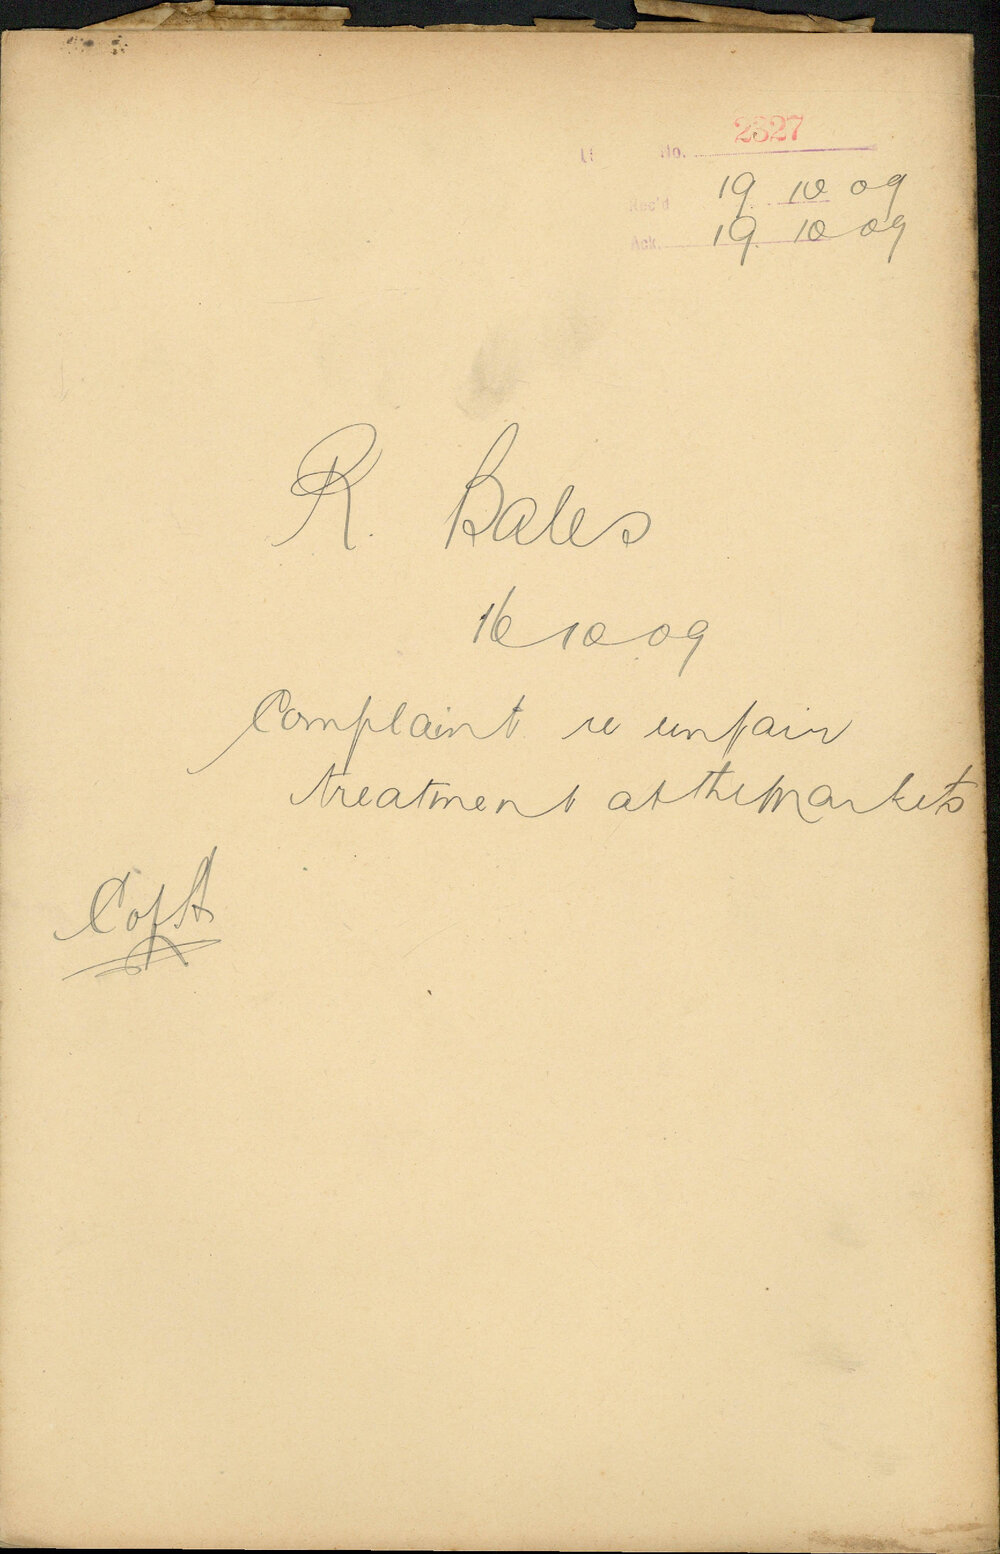 No. 2327
Rec'd 19. 10 09
Ack. 19. 10 09
R. Bales
16 10 09
Complaint re unfair
treatment at the Markets
C of A